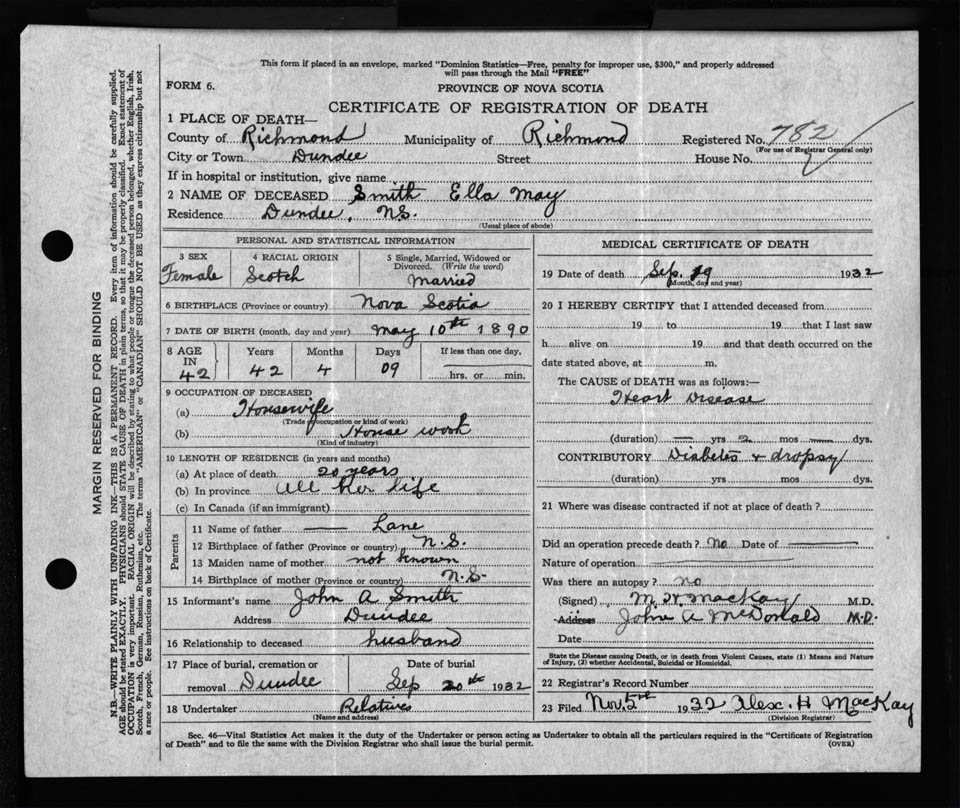 This form if placed in an envelope, marked "Dominion Statistics—Free, penalty for improper use, $300," and properly addressed
will pass through the Mail "FREE"
FORM 6.
PROVINCE OF NOVA SCOTIA
CERTIFICATE OF REGISTRATION OF DEATH
1 PLACE OF DEATH—
County of Richmond Municipality of Richmond Registered No. 782
(For use of Registrar General only)
City or Town Dundee Street House No.
If in hospital or institution, give name
2 NAME OF DECEASED Smith Ella May
Residence Dundee, N.S.
(Usual place of abode)
PERSONAL AND STATISTICAL INFORMATION
3 SEX 4 RACIAL ORIGIN 5 Single, Married, Widowed or
Divorced. (Write the word)
Female Scotch Married
6 BIRTHPLACE (Province or country) Nova Scotia
7 DATE OF BIRTH (month, day and year) May 10th 1890
8 AGE Years Months Days If less than one day,
IN
42 42 4 09 hrs. or min.
9 OCCUPATION OF DECEASED
(a) Housewife
(Trade occupation or kind of work)
(b) House work
(Kind of industry)
10 LENGTH OF RESIDENCE (in years and months)
(a) At place of death 20 years
(b) In province all her life
(c) In Canada (if an immigrant)
Parents
11 Name of father — Lane
12 Birthplace of father (Province or country) N.S.
13 Maiden name of mother not known
14 Birthplace of mother (Province or country) N.S.
15 Informant's name John A Smith
Address Dundee
16 Relationship to deceased husband
17 Place of burial, cremation or Date of burial
removal Dundee Sep 20th 1932
18 Undertaker Relatives
(Name and address)
MEDICAL CERTIFICATE OF DEATH
19 Date of death Sep. 19 1932
(Month, day and year)
20 I HEREBY CERTIFY that I attended deceased from
19 to 19 that I last saw
h alive on 19 and that death occurred on the
date stated above, at m.
The CAUSE OF DEATH was as follows:—
Heart Disease
(duration) — yrs 2 mos — dys.
CONTRIBUTORY Diabetes + dropsy
(duration) yrs mos dys.
21 Where was disease contracted if not at place of death?
Did an operation precede death? No Date of
Nature of operation
Was there an autopsy? no
(Signed) M. H. MacKay M.D.
Address John A McDonald M.D.
Date
State the Disease causing Death, or in death from Violent Causes, state (1) Means and Nature
of Injury, (2) whether Accidental, Suicidal or Homicidal.
22 Registrar's Record Number
23 Filed Nov. 5th 1932 Alex. H MacKay
(Division Registrar)
Sec. 46—Vital Statistics Act makes it the duty of the Undertaker or person acting as Undertaker to obtain all the particulars required in the "Certificate of Registration
of Death" and to file the same with the Division Registrar who shall issue the burial permit.
(OVER)
MARGIN RESERVED FOR BINDING
N.B.—WRITE PLAINLY WITH UNFADING INK—THIS IS A PERMANENT RECORD. Every item of information should be carefully supplied.
AGE should be stated EXACTLY. PHYSICIANS should STATE CAUSE OF DEATH in plain terms, so that it may be properly classified. Exact statement of
OCCUPATION is very important. RACIAL ORIGIN will be described by stating to what people or tongue the deceased person belonged, whether English, Irish,
Scotch, French, German, Russian, Ruthenian, etc. The terms "AMERICAN" or "CANADIAN" SHOULD NOT BE USED as they express citizenship but not
a race or people. See instructions on back of Certificate.